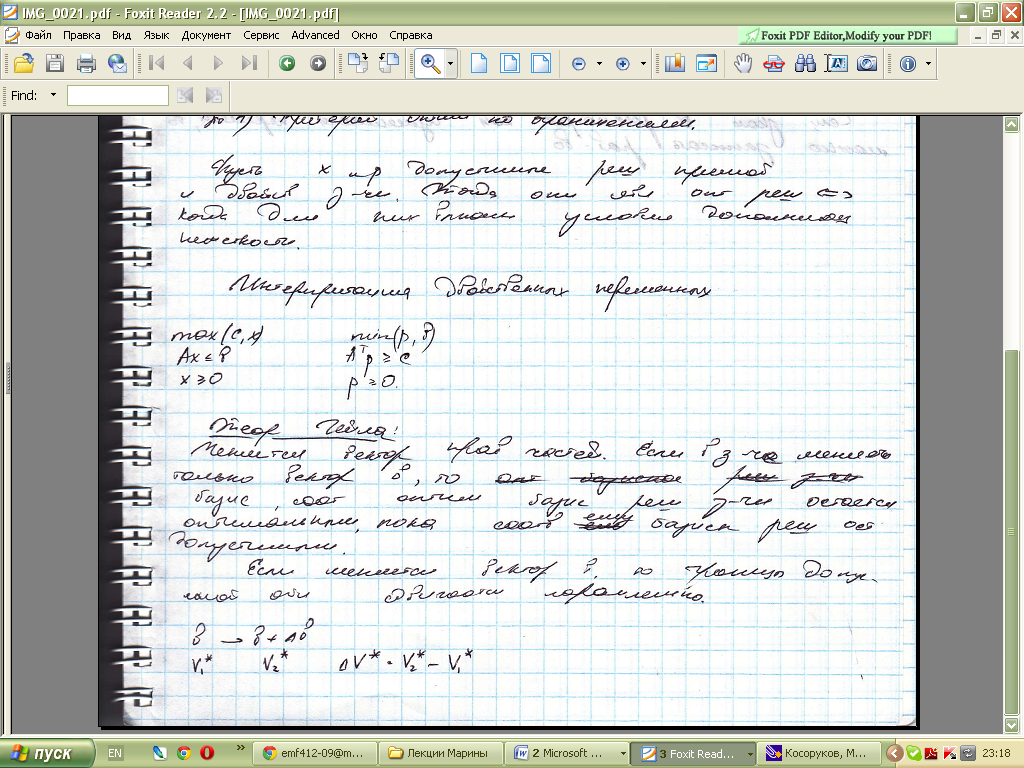 IMG_0021.pdf - Foxit Reader 2.2 - [IMG_0021.pdf]
Файл Правка Вид Язык Документ Сервис Advanced Окно Справка
Foxit PDF Editor,Modify your PDF!
Find:
по ограничениям.
Пусть x и p допустимые реш прямой
и двойств з-чи. Тогда они явл опт реш <=>
когда для них вып условия дополняющ
нежесткости.
Интерпретация двойственных переменных
max(c,x) min(p,b)
Ax ≤ b Aᵀp ≥ c
x ≥ 0 p ≥ 0.
Теор Гейла:
Меняется вектор прав частей. Если в з-че менять
только вектор b, то опт базисное реш з-чи
базис, соот оптим базис реш з-чи остается
оптимальным, пока соотв ему базисн реш ост
допустимым.
Если меняется вектор b, то границы допус-
тимой обл двигаются параллельно.
b → b + Δb
V₁* V₂* ΔV* = V₂* - V₁*
пуск EN » emf412-09@m... Лекции Марины 2 Microsoft ... 3 Foxit Read... Косоруков, М... 23:18